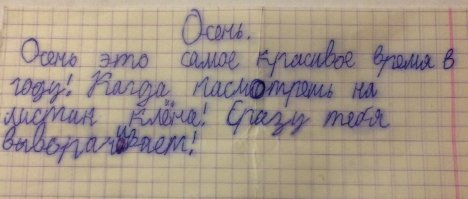 Осень.
Осень это самое красивое время в
году! Кагда пасмотреть на
листан клёна! Сразу тебя
выворачивает!